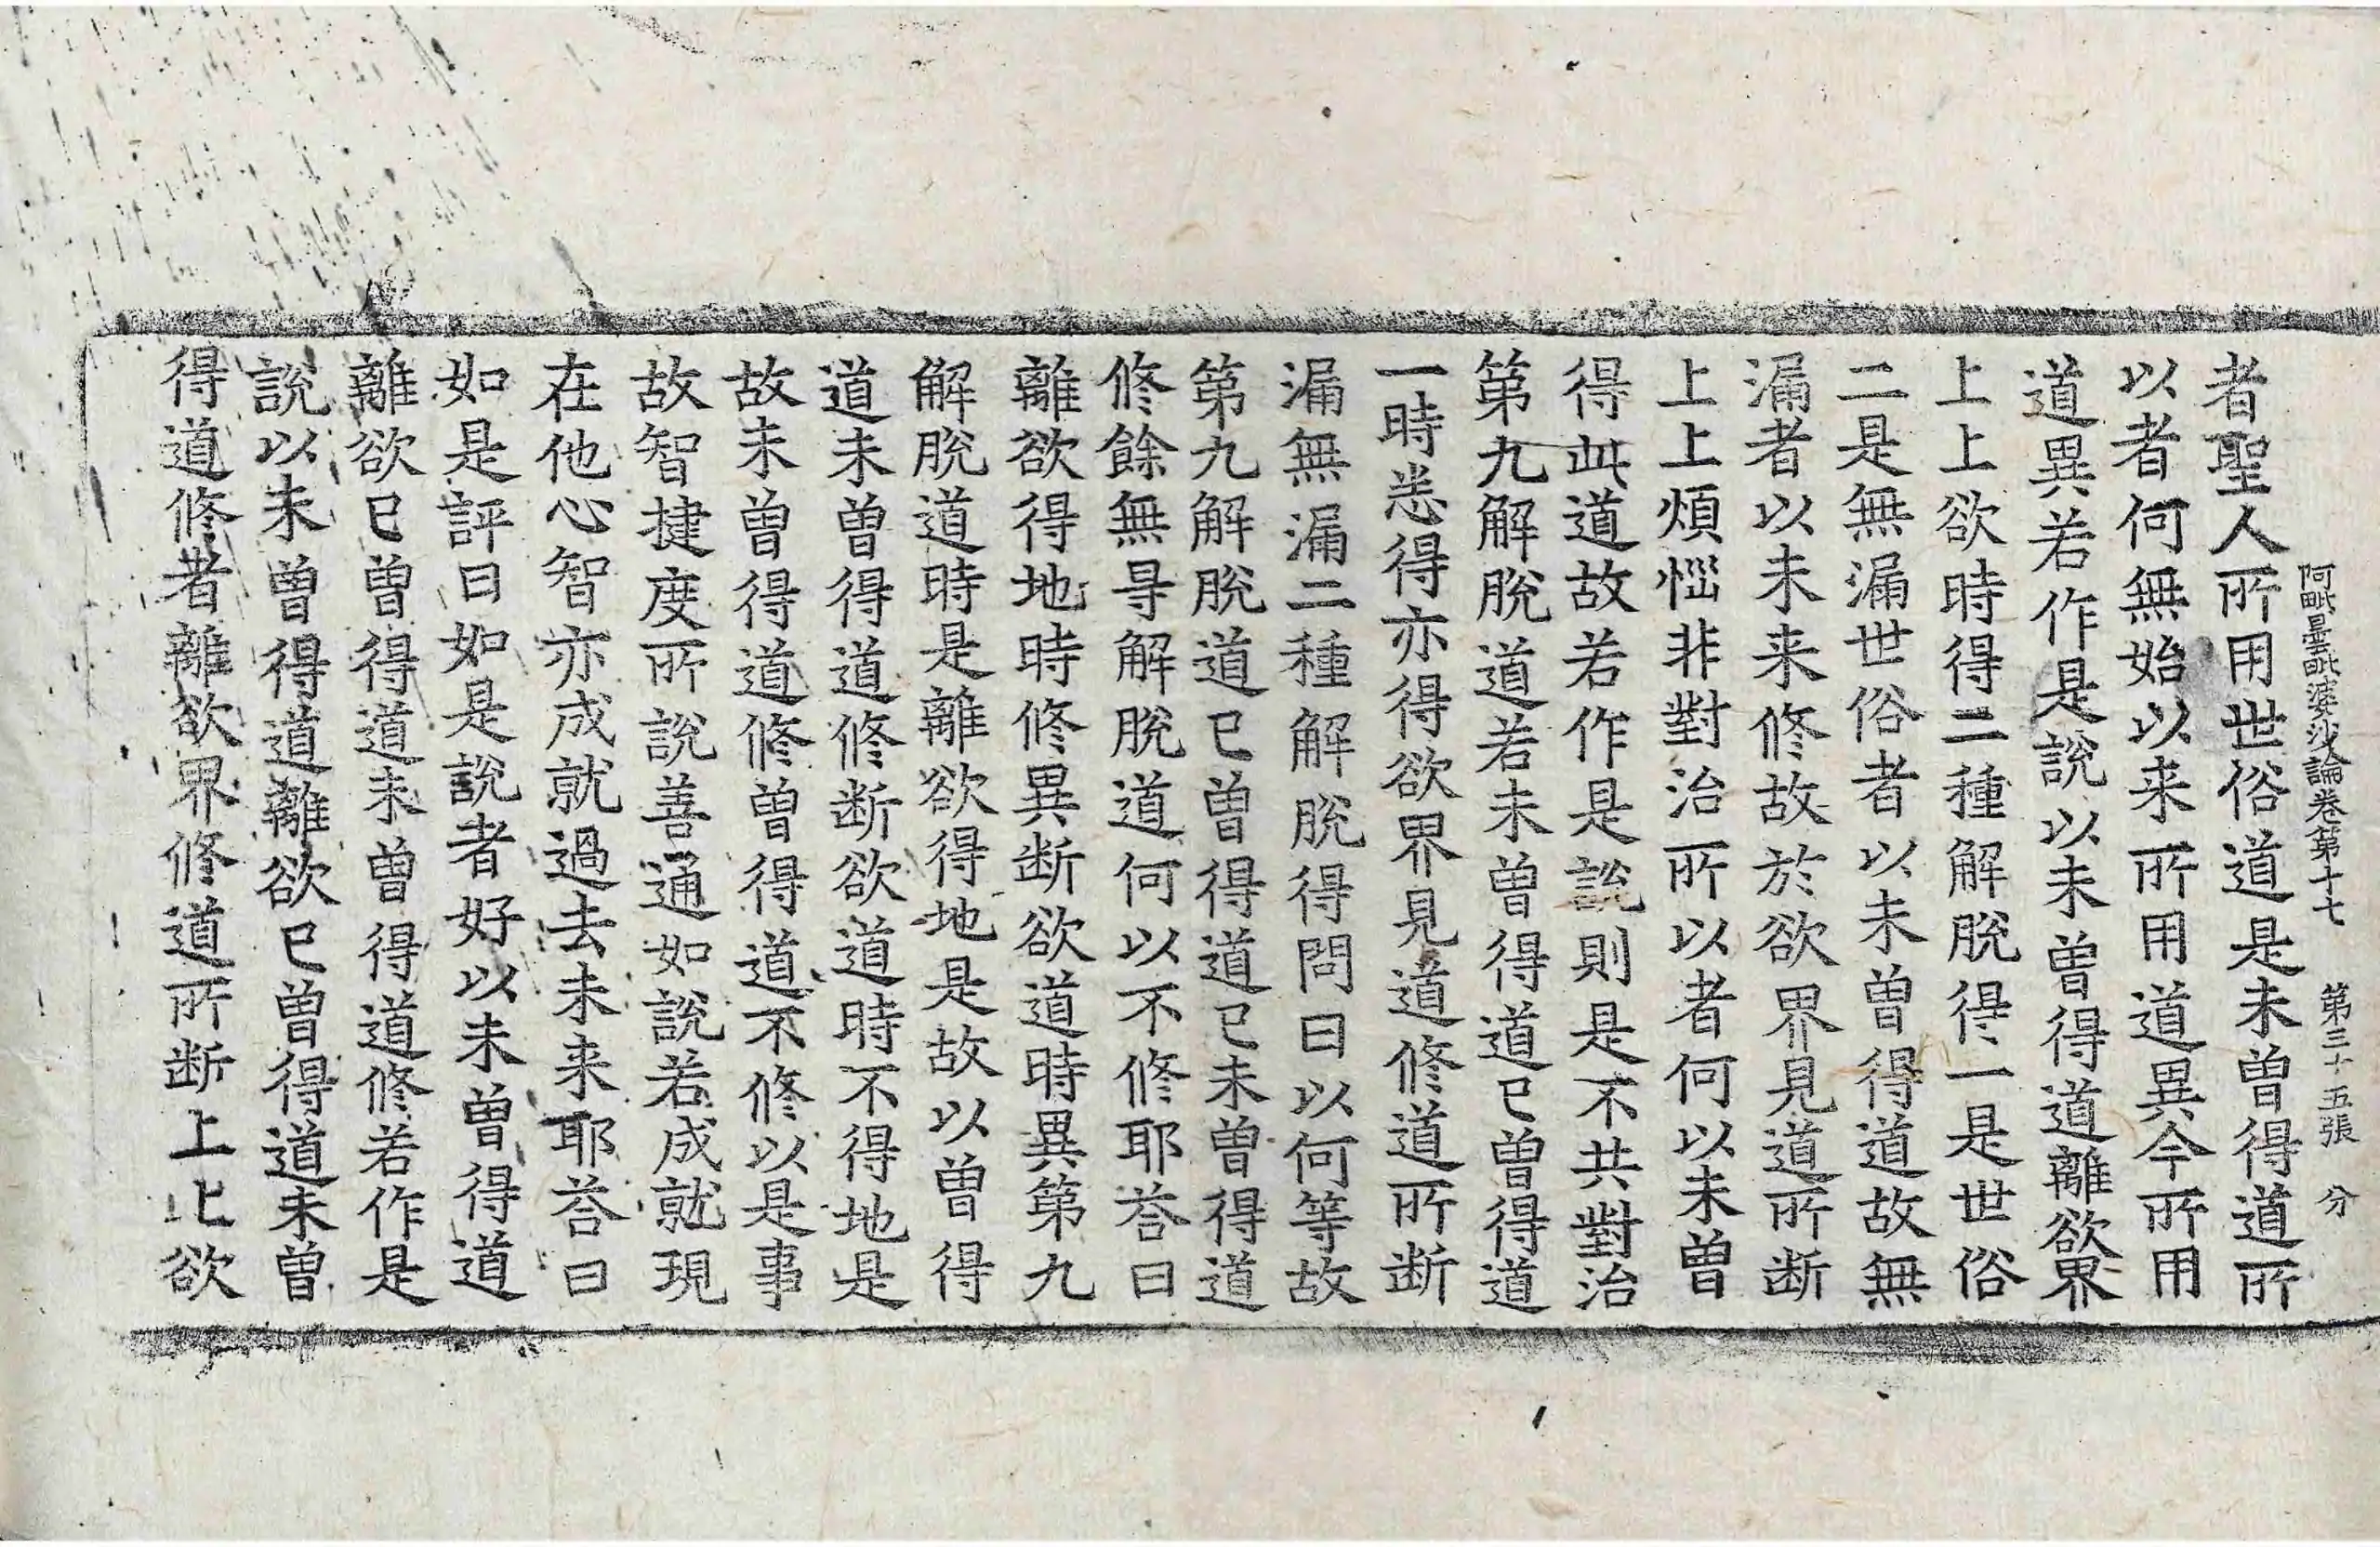 阿毗曇毗婆沙論卷第十七 第三十五張 分
者聖人所用世俗道是未曾得道所
以者何無始以来所用道異今所用
道異若作是說以未曾得道離欲界
上上欲時得二種解脫得一是世俗
二是無漏世俗者以未曾得道故無
漏者以未来修故於欲界見道所断
上上煩惱非對治所以者何以未曾
得此道故若作是說則是不共對治
第九解脫道若未曾得道已曾得道
一時悉得亦得欲界見道修道所断
漏無漏二種解脫得問曰以何等故
第九解脫道已曾得道已未曾得道
修餘無㝵解脫道何以不修耶荅曰
離欲得地時修異断欲道時異第九
解脫道時是離欲得地是故以曽得
道未曾得道修断欲道時不得地是
故未曾得道修曾得道不修以是事
故智揵度所說善通如說若成就現
在他心智亦成就過去未来耶荅曰
如是評曰如是說者好以未曾得道
離欲已曾得道未曾得道修若作是
說以未曾得道離欲已曾得道未曾
得道修者離欲界修道所断上上欲